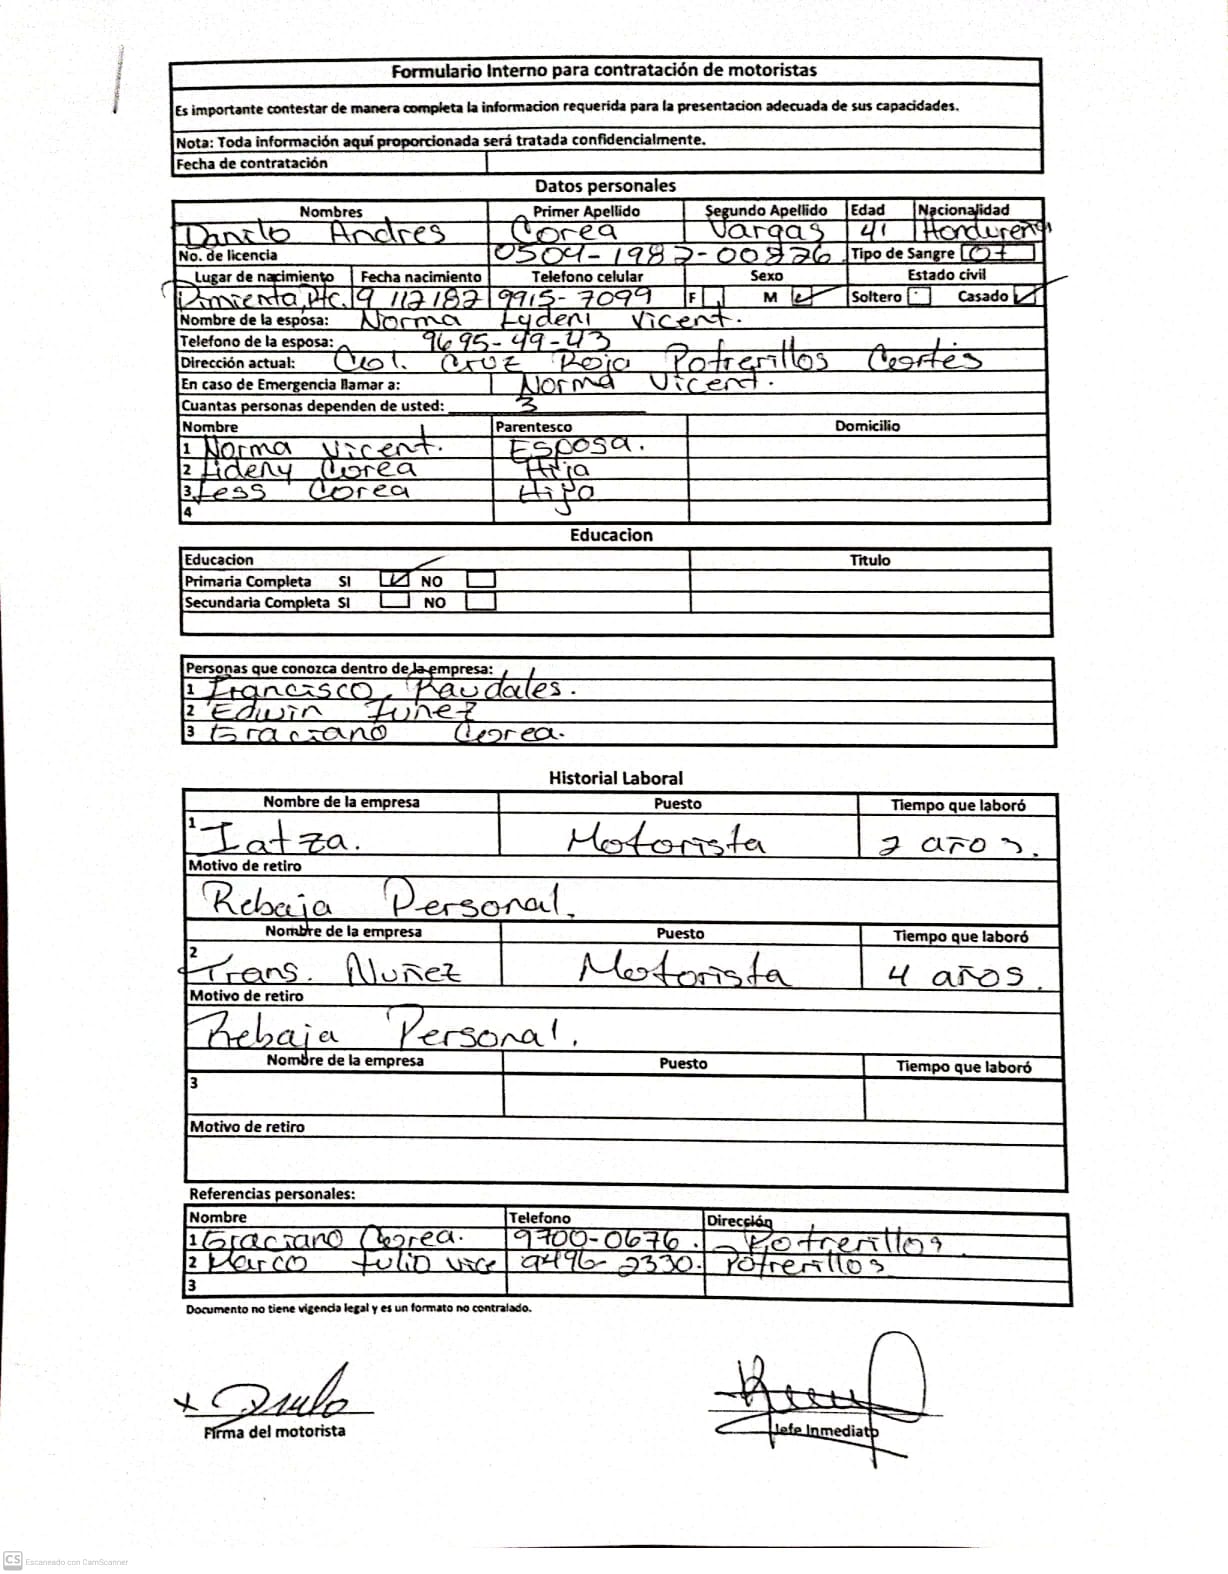 Formulario Interno para contratación de motoristas
Es importante contestar de manera completa la informacion requerida para la presentacion adecuada de sus capacidades.
Nota: Toda información aquí proporcionada será tratada confidencialmente.
Fecha de contratación
Datos personales
Nombres Primer Apellido Segundo Apellido Edad Nacionalidad
Danilo Andres Corea Vargas 41 Hondureña
No. de licencia 0509-1982-00826 Tipo de Sangre O+
Lugar de nacimiento Fecha nacimiento Telefono celular Sexo Estado civil
Pimienta, 9 /12/82 9915-7099 F M Soltero Casado
Nombre de la esposa: Norma Lydeni Vicent.
Telefono de la esposa: 9695-49-43
Dirección actual: Col. Cruz Roja Potrerillos Cortés
En caso de Emergencia llamar a: Norma Vicent.
Cuantas personas dependen de usted: 3
Nombre Parentesco Domicilio
1 Norma Vicent. Esposa.
2 Lideny Corea Hija
3 Less Corea Hijo
4
Educacion
Educacion Titulo
Primaria Completa SI NO
Secundaria Completa SI NO
Personas que conozca dentro de la empresa:
1 Francisco Raudales.
2 Edwin Funez
3 Graciano Corea.
Historial Laboral
Nombre de la empresa Puesto Tiempo que laboró
1 Iatza. Motorista 2 años.
Motivo de retiro
Rebaja Personal.
Nombre de la empresa Puesto Tiempo que laboró
2 Trans. Nuñez Motorista 4 años.
Motivo de retiro
Rebaja Personal.
Nombre de la empresa Puesto Tiempo que laboró
3
Motivo de retiro
Referencias personales:
Nombre Telefono Dirección
1 Graciano Corea. 9700-0676. Potrerillos.
2 Marco Tulio Vice 9496-2330. Potrerillos
3
Documento no tiene vigencia legal y es un formato no contralado.
x Danilo
Firma del motorista Jefe Inmediato
CS Escaneado con CamScanner